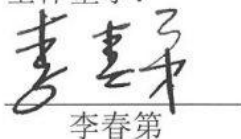 李春第
李春第